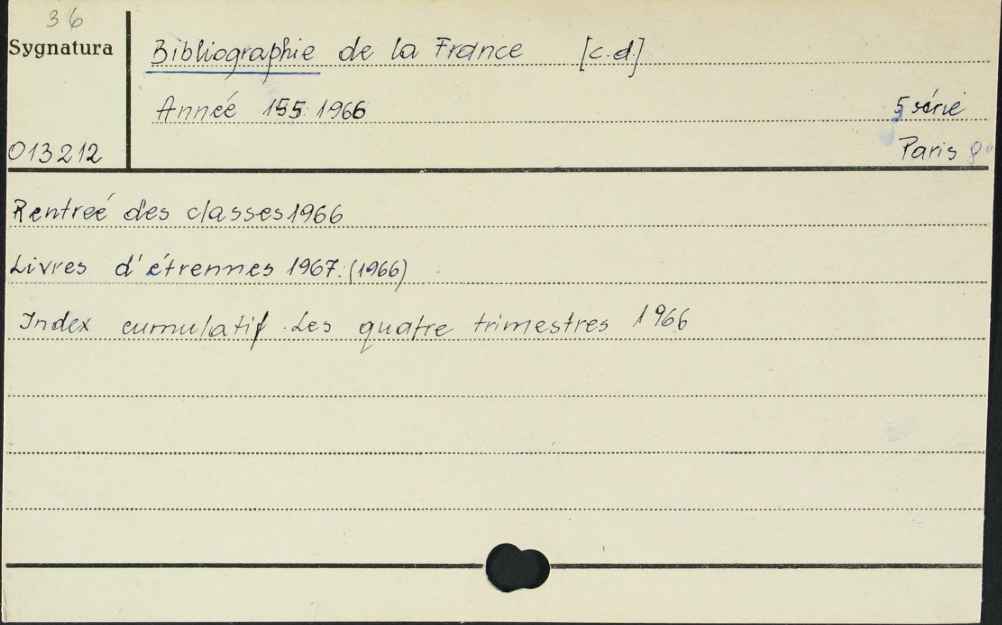 36
Sygnatura
Bibliographie de la France [c.d.]
Anneé 155 1966 5 série
013212 Paris 8°
Rentreé des classes 1966
Livres d'étrennes 1967. (1966)
Index cumulatif. Les quatre trimestres 1966